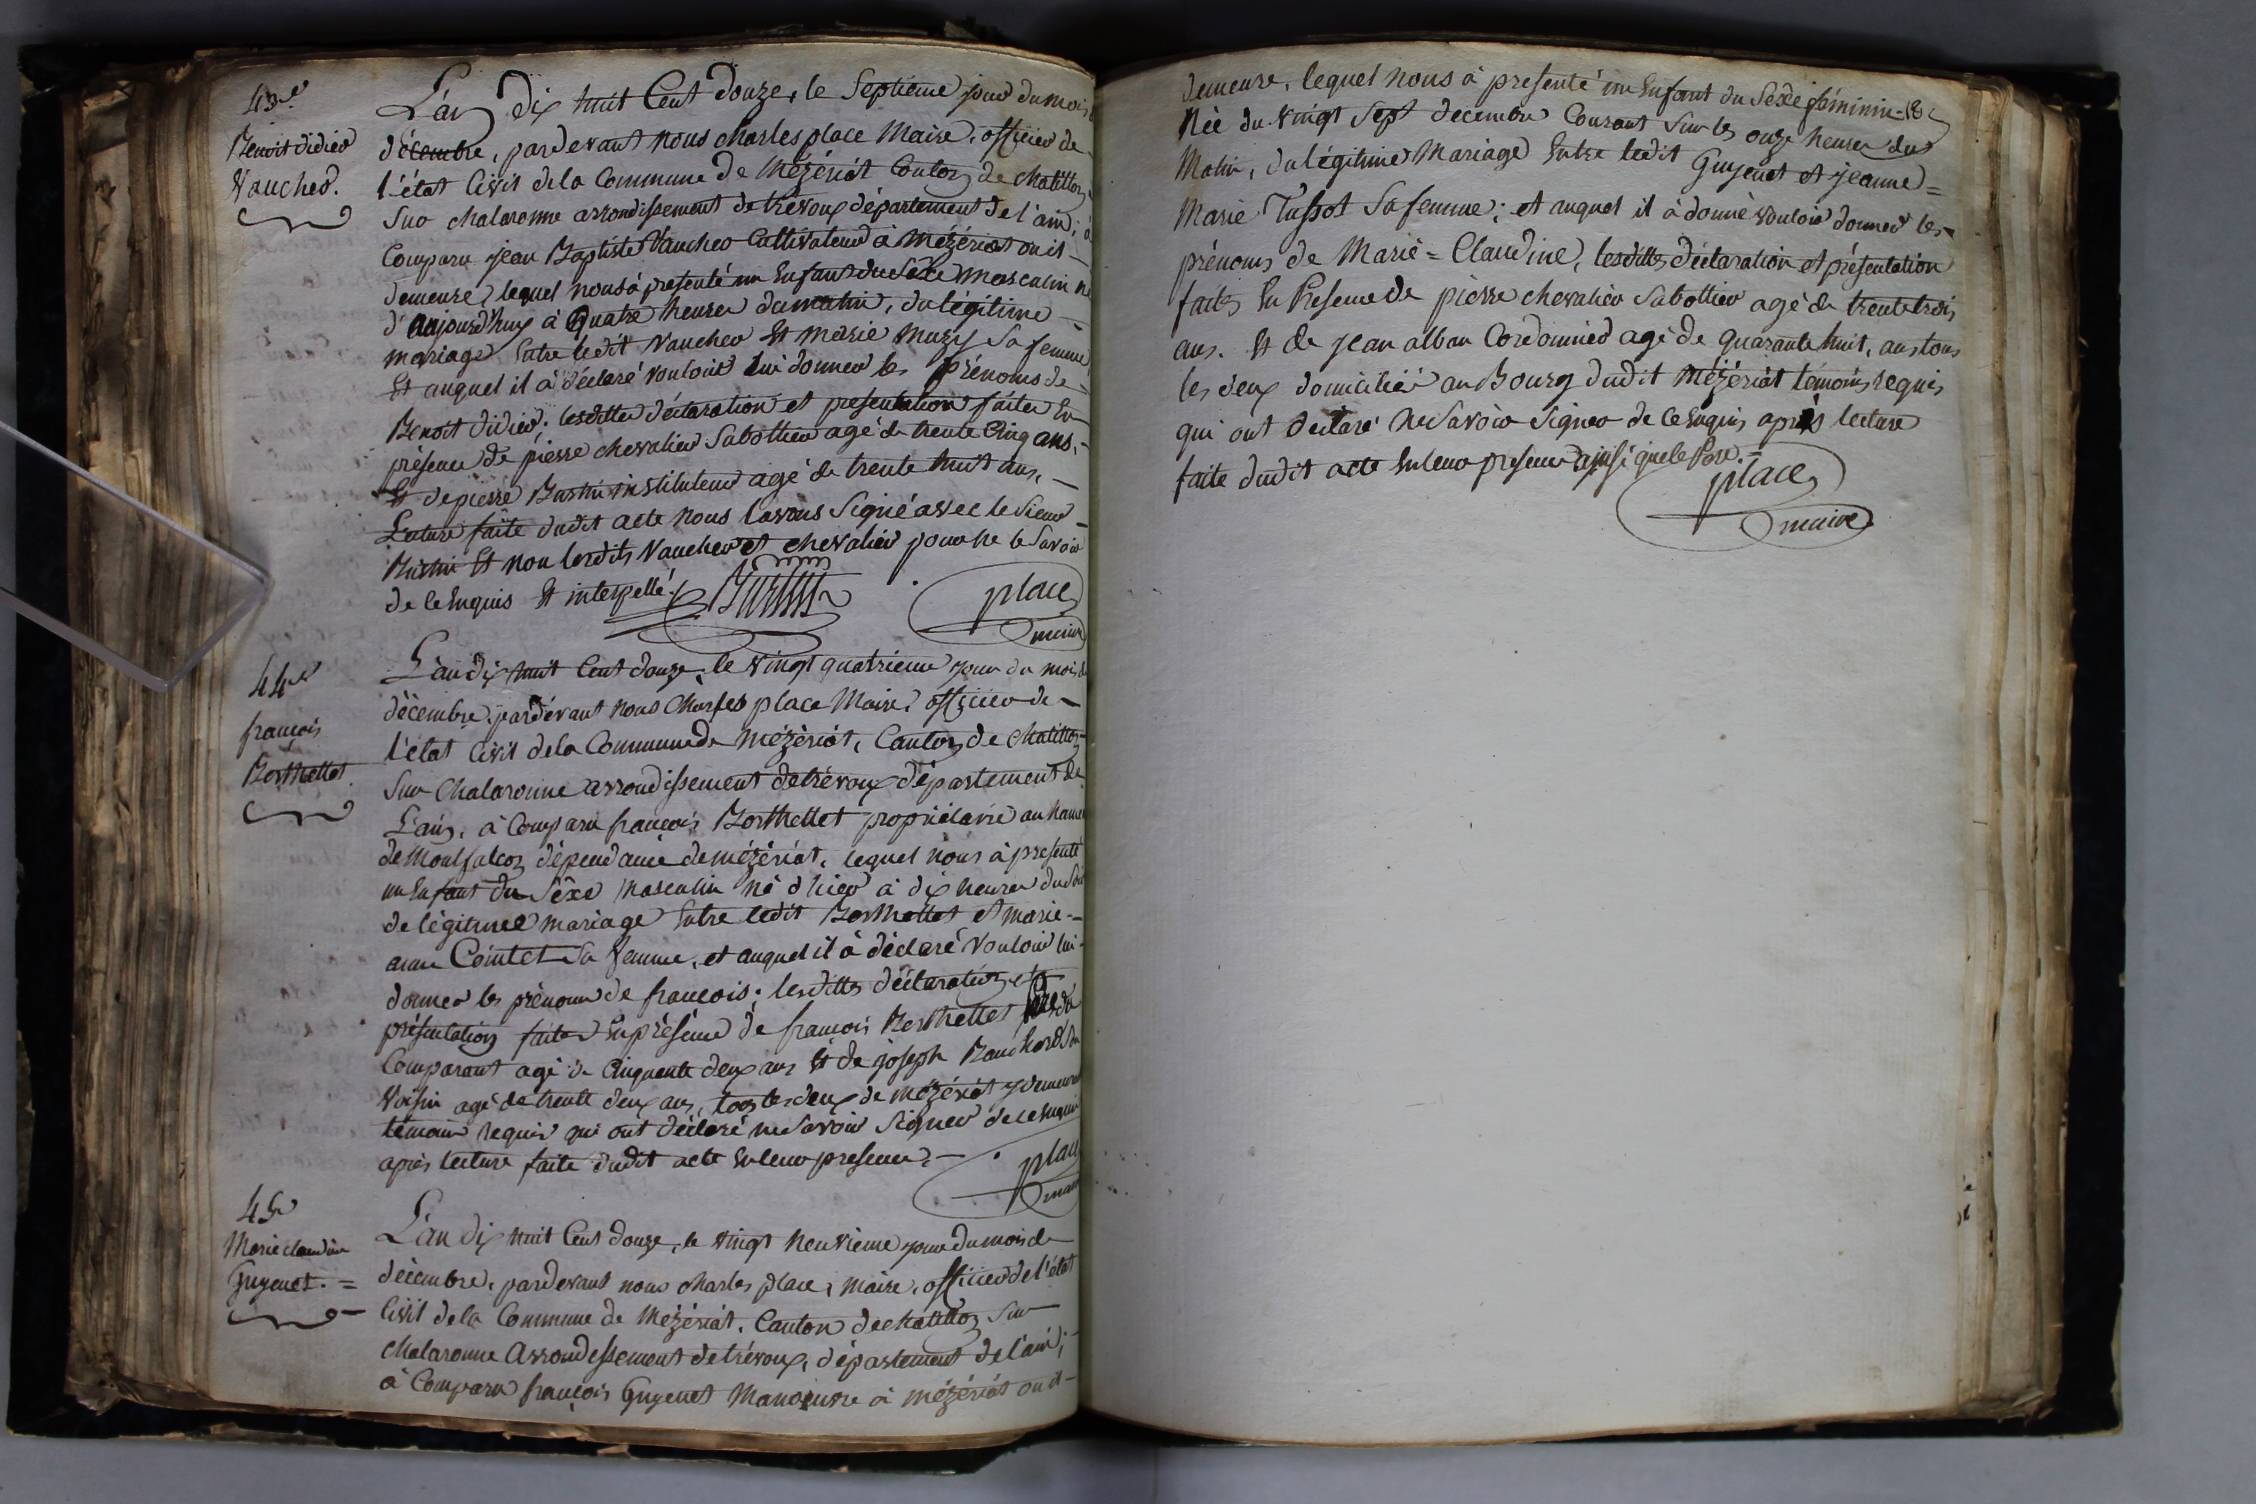 43me
Benoit didier
Vaucher.
L'an Dix huit Cent Douze, le Septieme jour du mois
décembre, pardevant nous charles place Maire, officier de
l'état Civil de la Commune de Mézériat Canton de chatillon
Sur chalaronne arrondissement de trévoux département de l'ain, à
Comparu jean Baptiste Vaucher Cultivateur à Mézériat ou il
demeure, lequel nous à presenté un Enfant du Sexe Masculin né
d'aujourd'huy à Quatre heures du matin, du légitime
mariage Entre ledit Vaucher Et Marie Muzy Sa femme
Et auquel il à déclaré vouloir lui donner les prénoms de =
Benoit didier; lesdittes déclaration et presentation faites En
présence de pierre chevalier Sabottier agé de trente Cinq ans,
Et de pierre instituteur agé de trente huit ans,
Lecture faite dudit acte nous l'avons Signé avec le Sieur
Et non lesdits Vaucher et chevalier pour ne le Savoir
de ce Enquis Et interpellé.
place
maire
44me
françois
Berthellet
L'an dix huit Cent douze, le vingt quatrieme jour du mois de
décembre, pardévant nous Charles place Maire, officier de
l'état Civil de la Commune de Mézériat, Canton de Chatillon
Sur Chalaronne arrondissement de trévoux département de
L'ain, à Comparu françois Berthellet propriétaire au hameau
de Montfalcon dépendance de mézériat, lequel nous à presenté
un Enfant du Sèxe Masculin né d'hier à dix heures du Soir
de légitime mariage Entre ledit Berthellet et Marie =
anne Cointet Sa femme, et auquel il à déclaré Vouloir lui
donner les prénoms de françois; lesdittes déclaration et
présentation faites En présence de françois Berthellet père du
Comparant agé de Cinquante deux ans Et de joseph son
Voisin agé de trente deux ans, tous les deux de mézériat y demeurant
témoins requis qui ont déclaré ne Savoir Signer de ce Enquis
après lecture faite dudit acte En leur presence.
place
maire
45me
Marie claudine
Guyenet. =
L'an dix huit Cent douze, le vingt neuvieme jour du mois de
décembre, pardevant nous charles place, maire, officier de l'état
Civil de la Commune de Mézériat, Canton de chatillon Sur
Chalaronne Arrondissement de trévoux, département de l'ain;
à Comparu françois Guyenet Manoeuvre à mézériat ou il
demeure, lequel nous à presenté un Enfant du Sexe féminin
Née du vingt Sept decembre Courant Sur les onze heures du
Matin, du légitime Mariage Entre ledit Guyenet et jeanne =
Marie Tussot Sa femme; et auquel il à donné vouloir donner les
prénoms de Marie = Claudine, lesdittes déclaration et présentation
faites En Presence de pierre chevalier Sabottier agé de trente trois
ans. Et de jean alban Cordonnier agé de quarante huit, ans tous
les deux domicilié au Bourg dudit Mézériat témoins requis
qui ont déclaré ne Savoir Signer de ce Enquis après lecture
faite dudit acte En leur presence ainsi que le Père.
place
maire